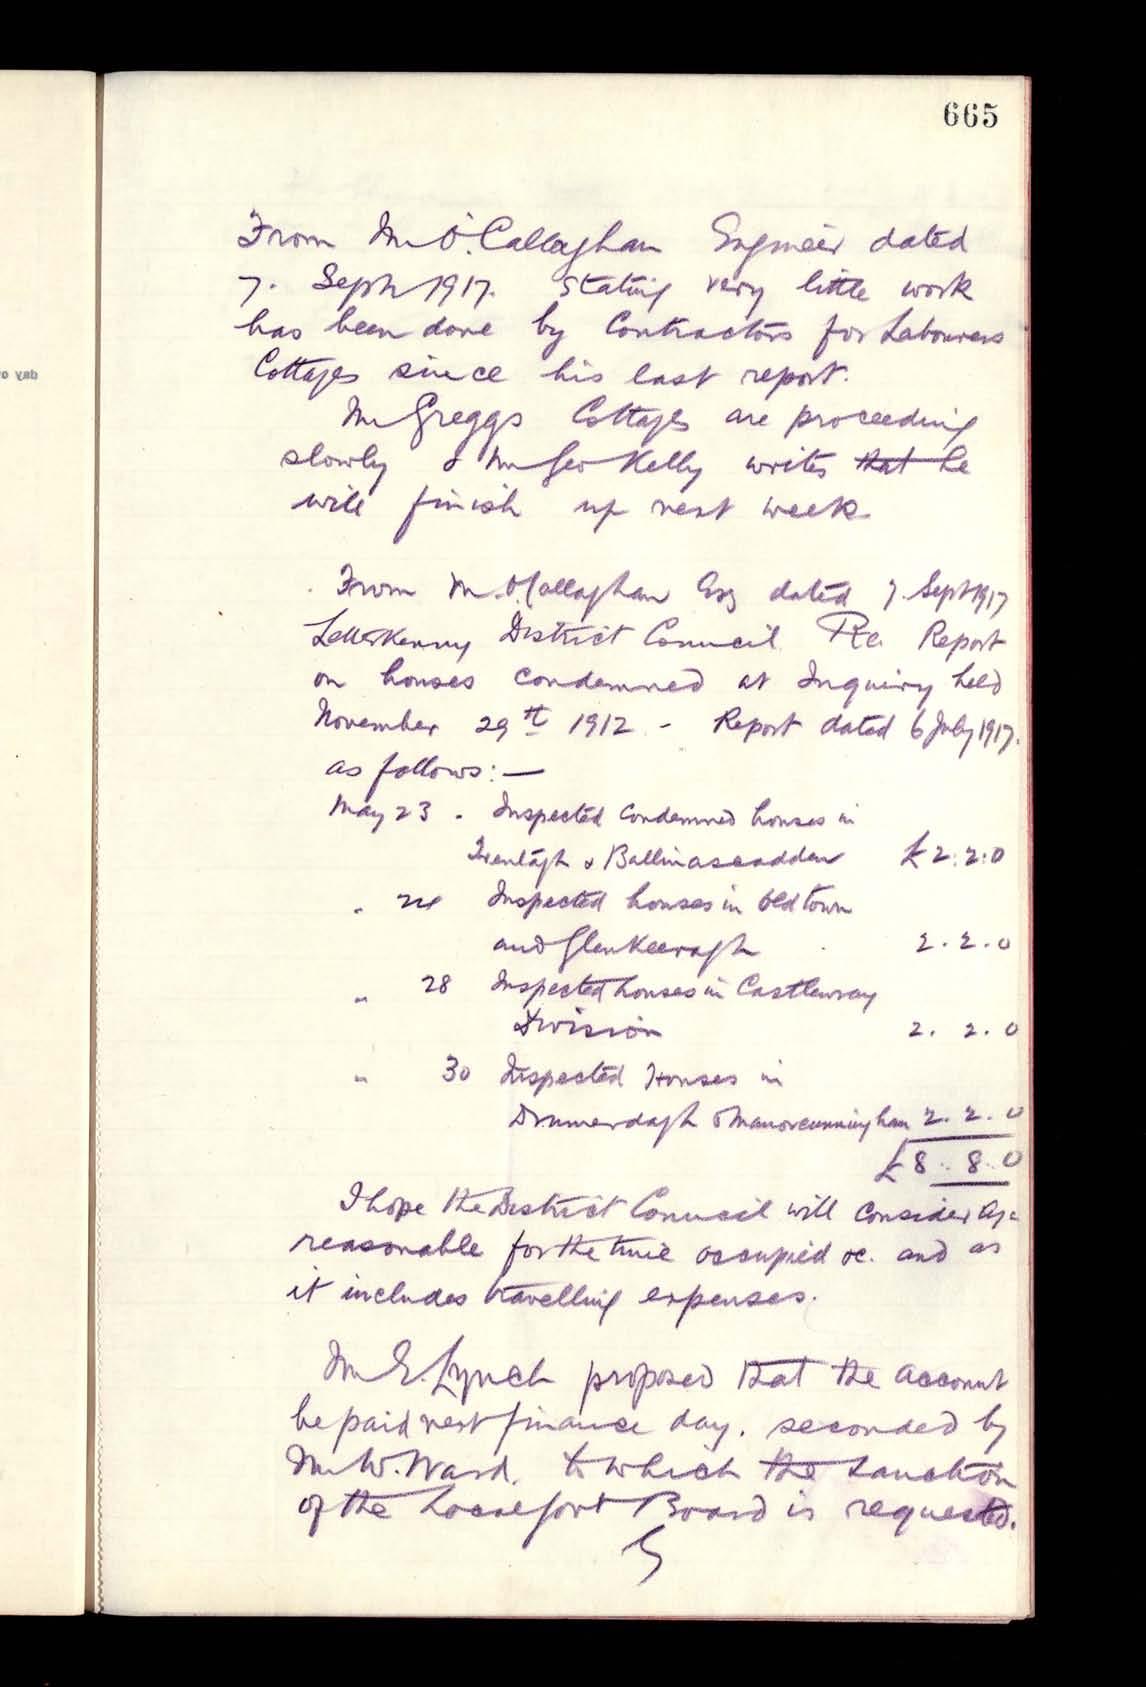 665
From Mr O'Callaghan Engineer dated
7. Sept 1917. Stating very little work
has been done by Contractors for Labourers
Cottages since his last report.
Mr Greggs Cottages are proceeding
slowly & Mr Geo Kelly writes that he
will finish up next week
From Mr O'Callaghan Esq dated 7. Sept 1917
Letterkenny District Council. Re. Report
on houses condemned at Inquiry held
November 29th 1912 - Report dated 6 July 1917.
as follows:—
May 23 . Inspected condemned houses in
Trentagh & Ballinascadden £2.2.0
" 24 Inspected houses in Oldtown
and Glenkeeragh 2.2.0
" 28 Inspected houses in Castlewray
Division 2. 2.0
" 30 Inspected Houses in
& Manorcunningham 2.2.0
£8..8..0
I hope the District Council will consider
reasonable for the time occupied &c. and as
it includes travelling expenses.
Mr E. Lynch proposed that the account
be paid next finance day. seconded by
Mr W. Ward. to which the sanction
of the Local Govt Board is requested.
day o